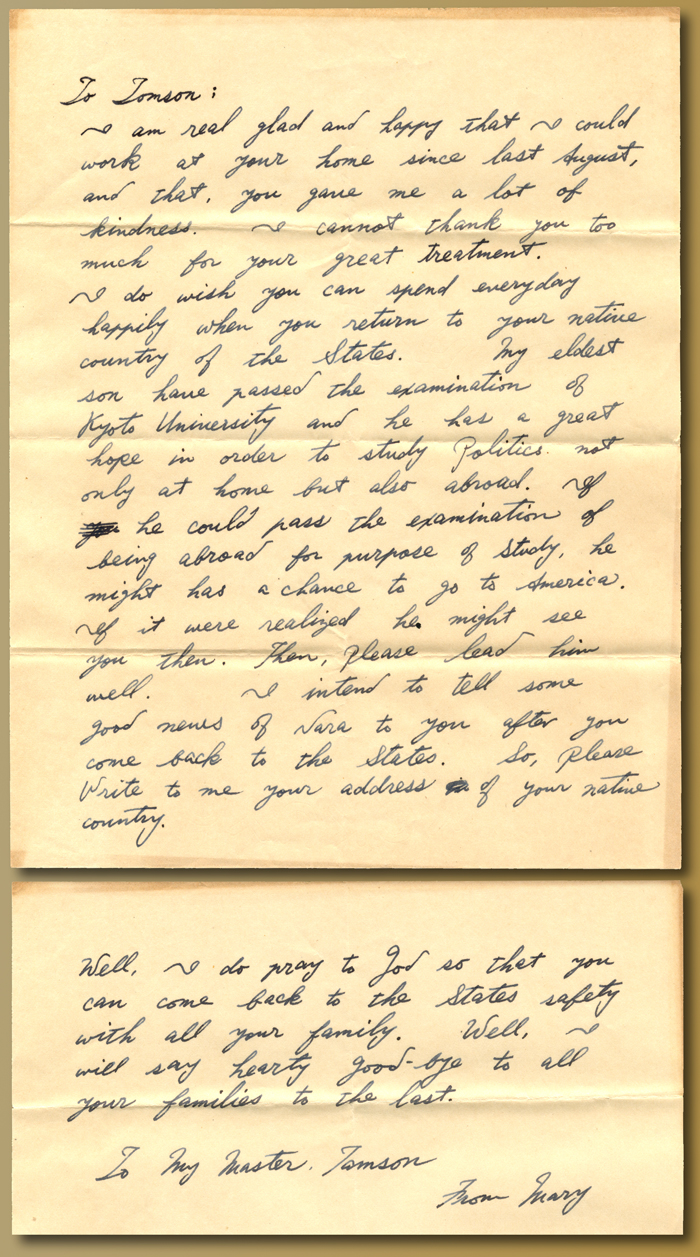 To Tomson:
I am real glad and happy that I could
work at your home since last August,
and that, you gave me a lot of
kindness. I cannot thank you too
much for your great treatment.
I do wish you can spend everyday
happily when you return to your native
country of the States. My eldest
son have passed the examination of
Kyoto University and he has a great
hope in order to study Politics not
only at home but also abroad. If
he could pass the examination of
being abroad for purpose of study, he
might has a chance to go to America.
If it were realized he might see
you then. Then, please lead him
well. I intend to tell some
good news of Nara to you after you
come back to the States. So, Please
Write to me your address of your native
country.
Well, I do pray to God so that you
can come back to the States safety
with all your family. Well, I
will say hearty good-bye to all
your families to the last.
To My Master. Tamson
From Mary